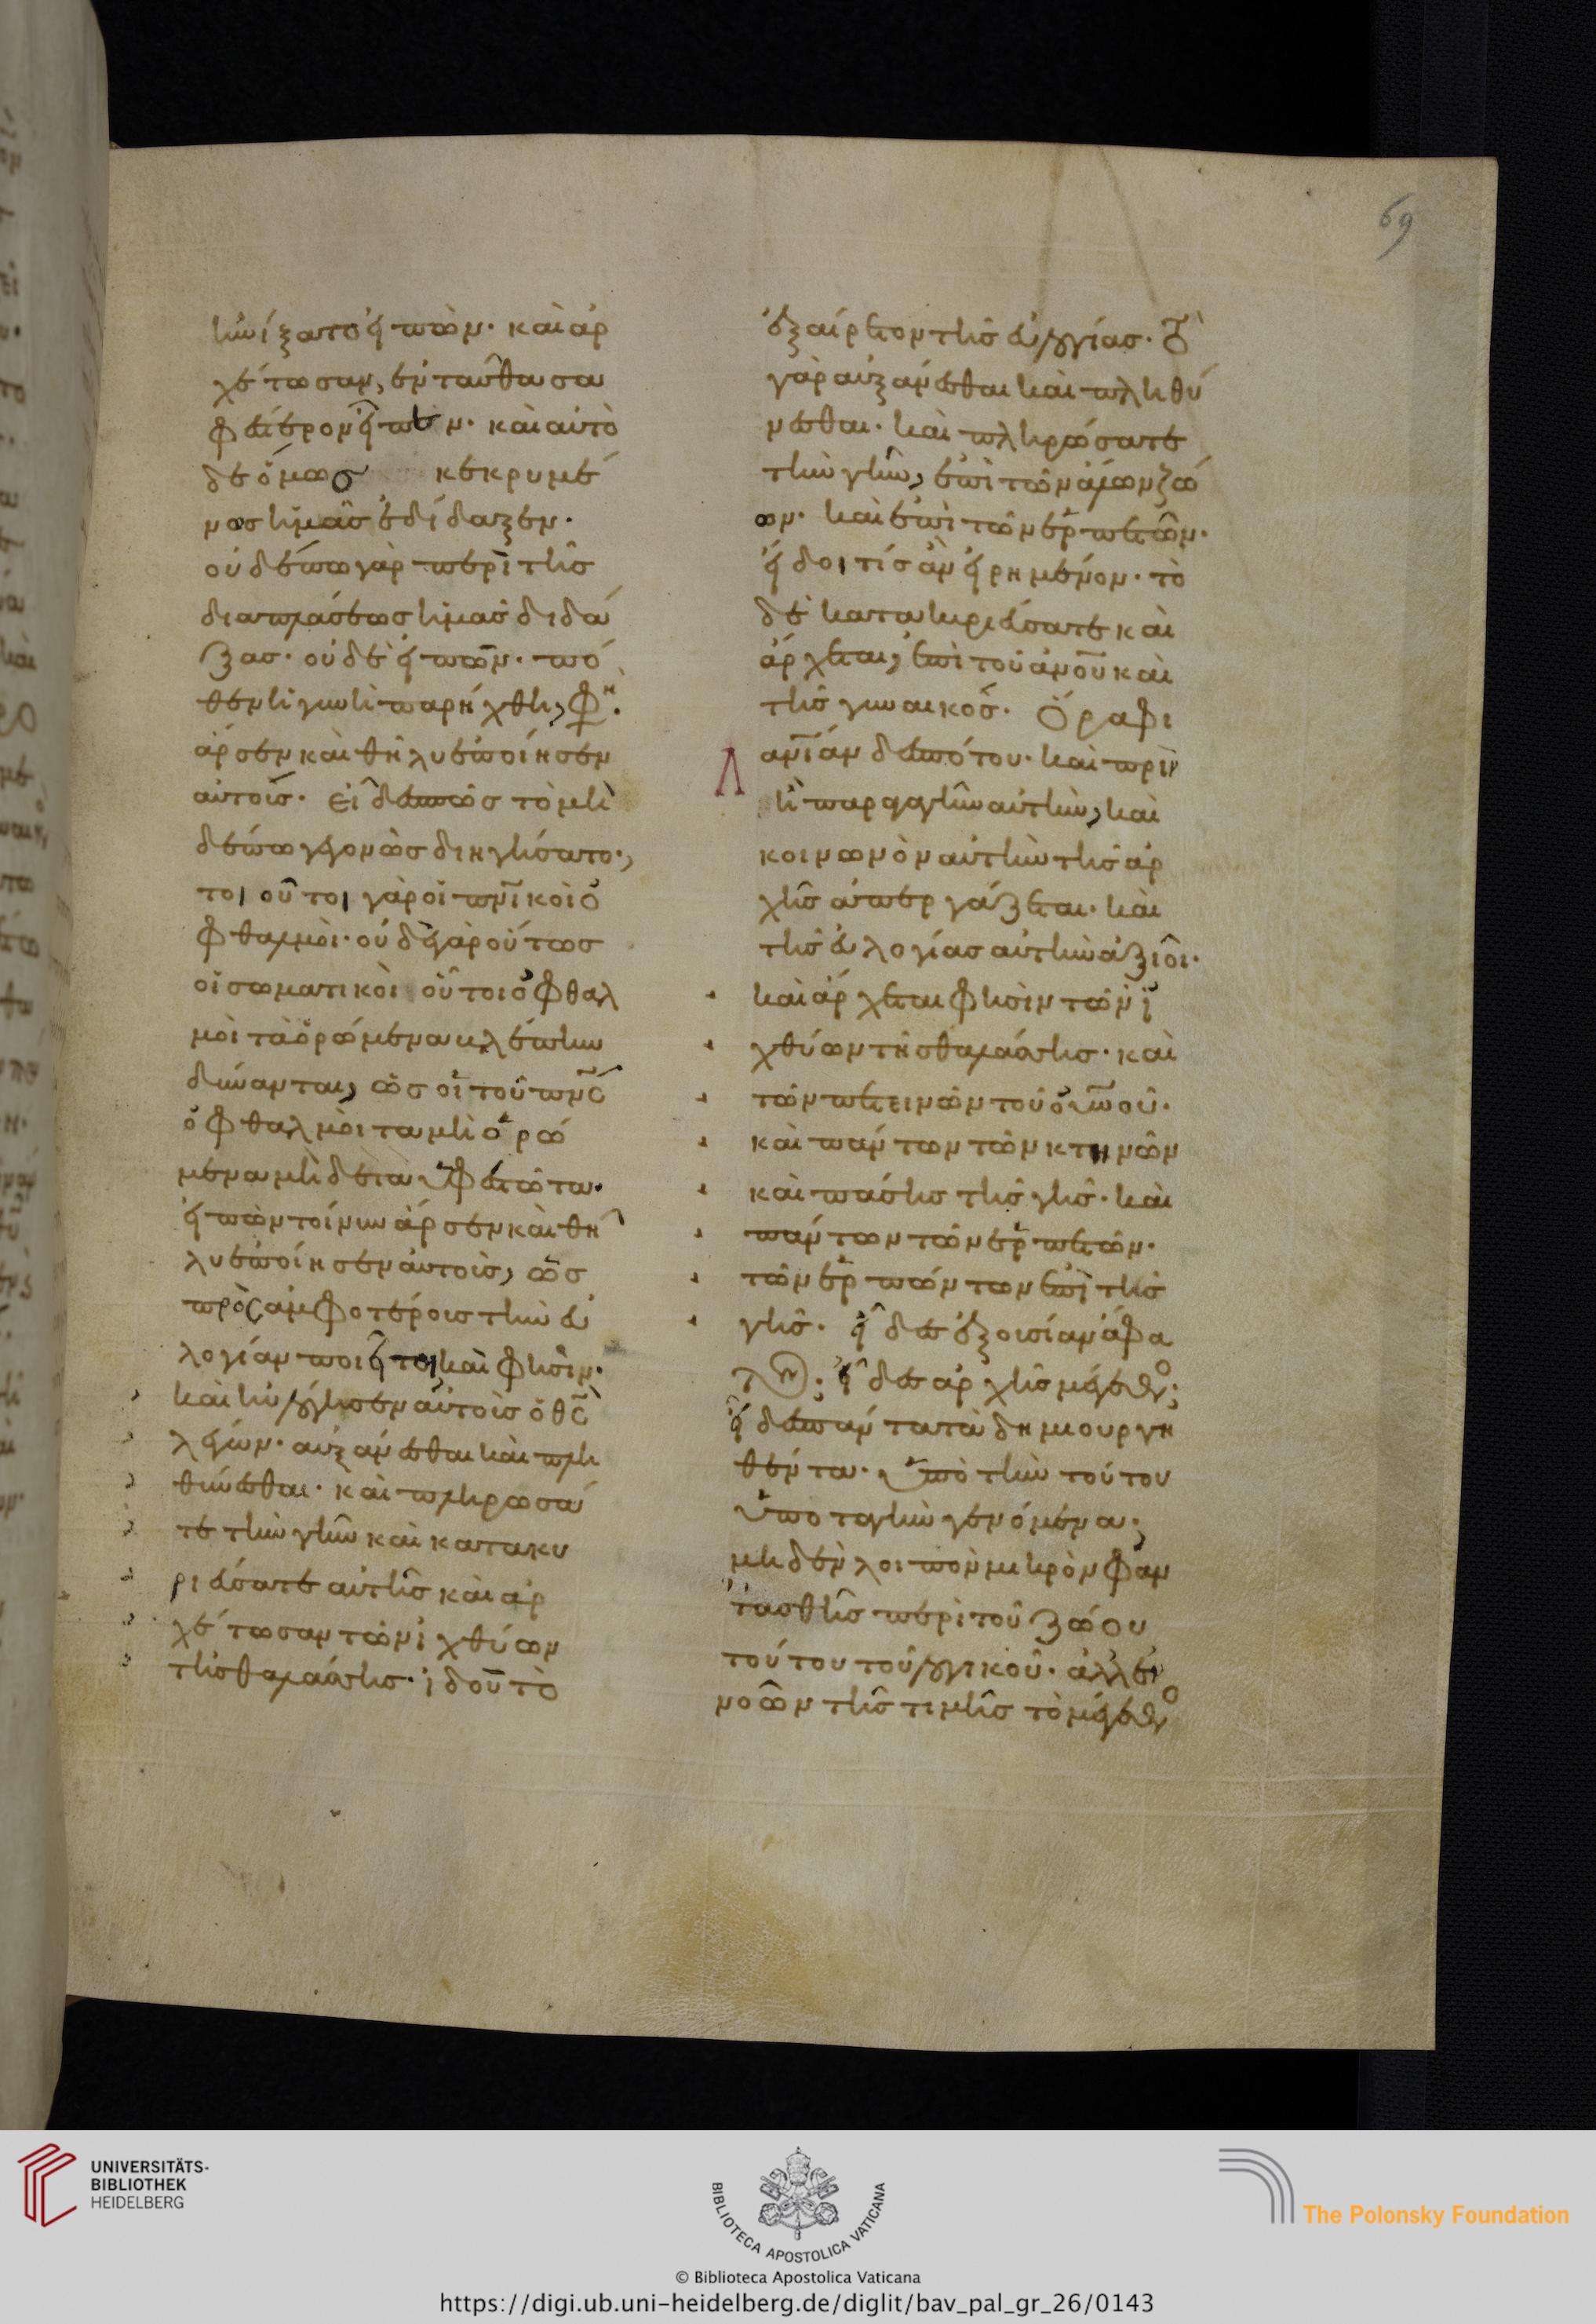 69
ηνίξατο εἰπὼν· καὶ ἀρ
χέτωσαν, ἐνταῦθα σα
φέστερον εἶπεν· καὶ αὐτὸ
δὲ ὅμως κεκρυμμέ
νως ἡμᾶς ἐδίδαξεν·
οὐδέπω γὰρ περὶ τῆς
διαπλάσεως ἡμᾶς διδά
ξας· οὐδὲ εἰπὼν· πό
θεν ἡ γυνὴ παρήχθη, φη·
ἄρσεν καὶ θῆλυ ἐποίησεν
αὐτοῖς· εἶδες πῶς τὸ μὴ
δέπω γεγονὸς διηγήσατο·
τοιοῦτοι γὰρ οἱ πνικοὶ ὀ
φθαλμοὶ· οὐδὲ γὰρ οὕτως
οἱ σωματικοὶ οὗτοι ὀφθαλ
μοὶ τὰ ὁρώμενα βλέπειν
δύνανται, ὡς οἱ τοῦ πνσ
ὀφθαλμοὶ τα μὴ ὁρώ
μενα μηδὲ ὑφεστῶτα·
εἰπὼν τοίνυν ἄρσεν καὶ θῆ
λυ ἐποίησεν αὐτοὶς, ὡς
πρὸς ἀμφοτέροις τὴν εὐ
λογίαν ποιεῖται καὶ φησὶν·
καὶ ηὐλόγησεν αὐτοὶς ὁ θσ
λέγων· αὐξάνεσθαι καὶ πλη
θύνεσθαι· καὶ πληρώσα
τε τὴν γῆν καὶ κατακυ
ριεύσατε αὐτῆς καὶ ἀρ
χέτωσαν τῶν ἰχθύων
τῆς θαλάσσης· ἰδοῦ τὸ
ἐξαίρετον τῆς εὐλογίας· τὸ
γὰρ αὐξάνεσθαι καὶ πληθύ
νεσθαι· καὶ πληρώσατε
τὴν γῆν, ἐπὶ τῶν ἀλόγων ζώ
ων· καὶ ἐπὶ τῶν ἑρπετῶν·
εἴδοι τίς ἂν εἰρημένον· τὸ
δὲ κατακυριεύσατε καὶ
ἄρχεται, ἐπὶ τοῦ ἀνοῦ καὶ
τῆς γυναικός. Ὅρα φι
λανίαν δεσπότου· καὶ πρὶν
ἢ παραγαγεῖν αὐτὴν, καὶ
κοινωνὸν αὐτὴν τῆς ἀρ
χῆς ἀπεργάζεται· καὶ
τῆς εὐλογίας αὐτὴν ἀξιοῖ·
καὶ ἄρχεται φησὶν τῶν ἰ
χθύων τῆς θαλάσσης· καὶ
τῶν πετεινῶν τοῦ οὐνοῦ·
καὶ πάντων τῶν κτηνῶν
καὶ πάσης τῆς γῆς· καὶ
πάντων τῶν ἑρπετῶν·
τῶν ἑρπόντων ἐπὶ τῆς
γῆς· εἶδες ἐξουσίαν ἄφα
τον; εἶδες ἀρχῆς μέγεθος;
εἶδες πάντα τὰ δημιουργη
θέντα· ὑπὸ τὴν τούτου
ὑποταγὴν γενόμενα;
μηδὲν λοιπὸν μικρὸν φαν
τασθῆς περὶ τοῦ ζώου
τούτου τοῦ λογικοῦ· ἀλλ' ἐν
νοῶν τῆς τιμῆς τὸ μέγεθος
UNIVERSITÄTS-
BIBLIOTHEK
HEIDELBERG
BIBLIOTECA APOSTOLICA VATICANA
The Polonsky Foundation
© Biblioteca Apostolica Vaticana
https://digi.ub.uni-heidelberg.de/diglit/bav_pal_gr_26/0143